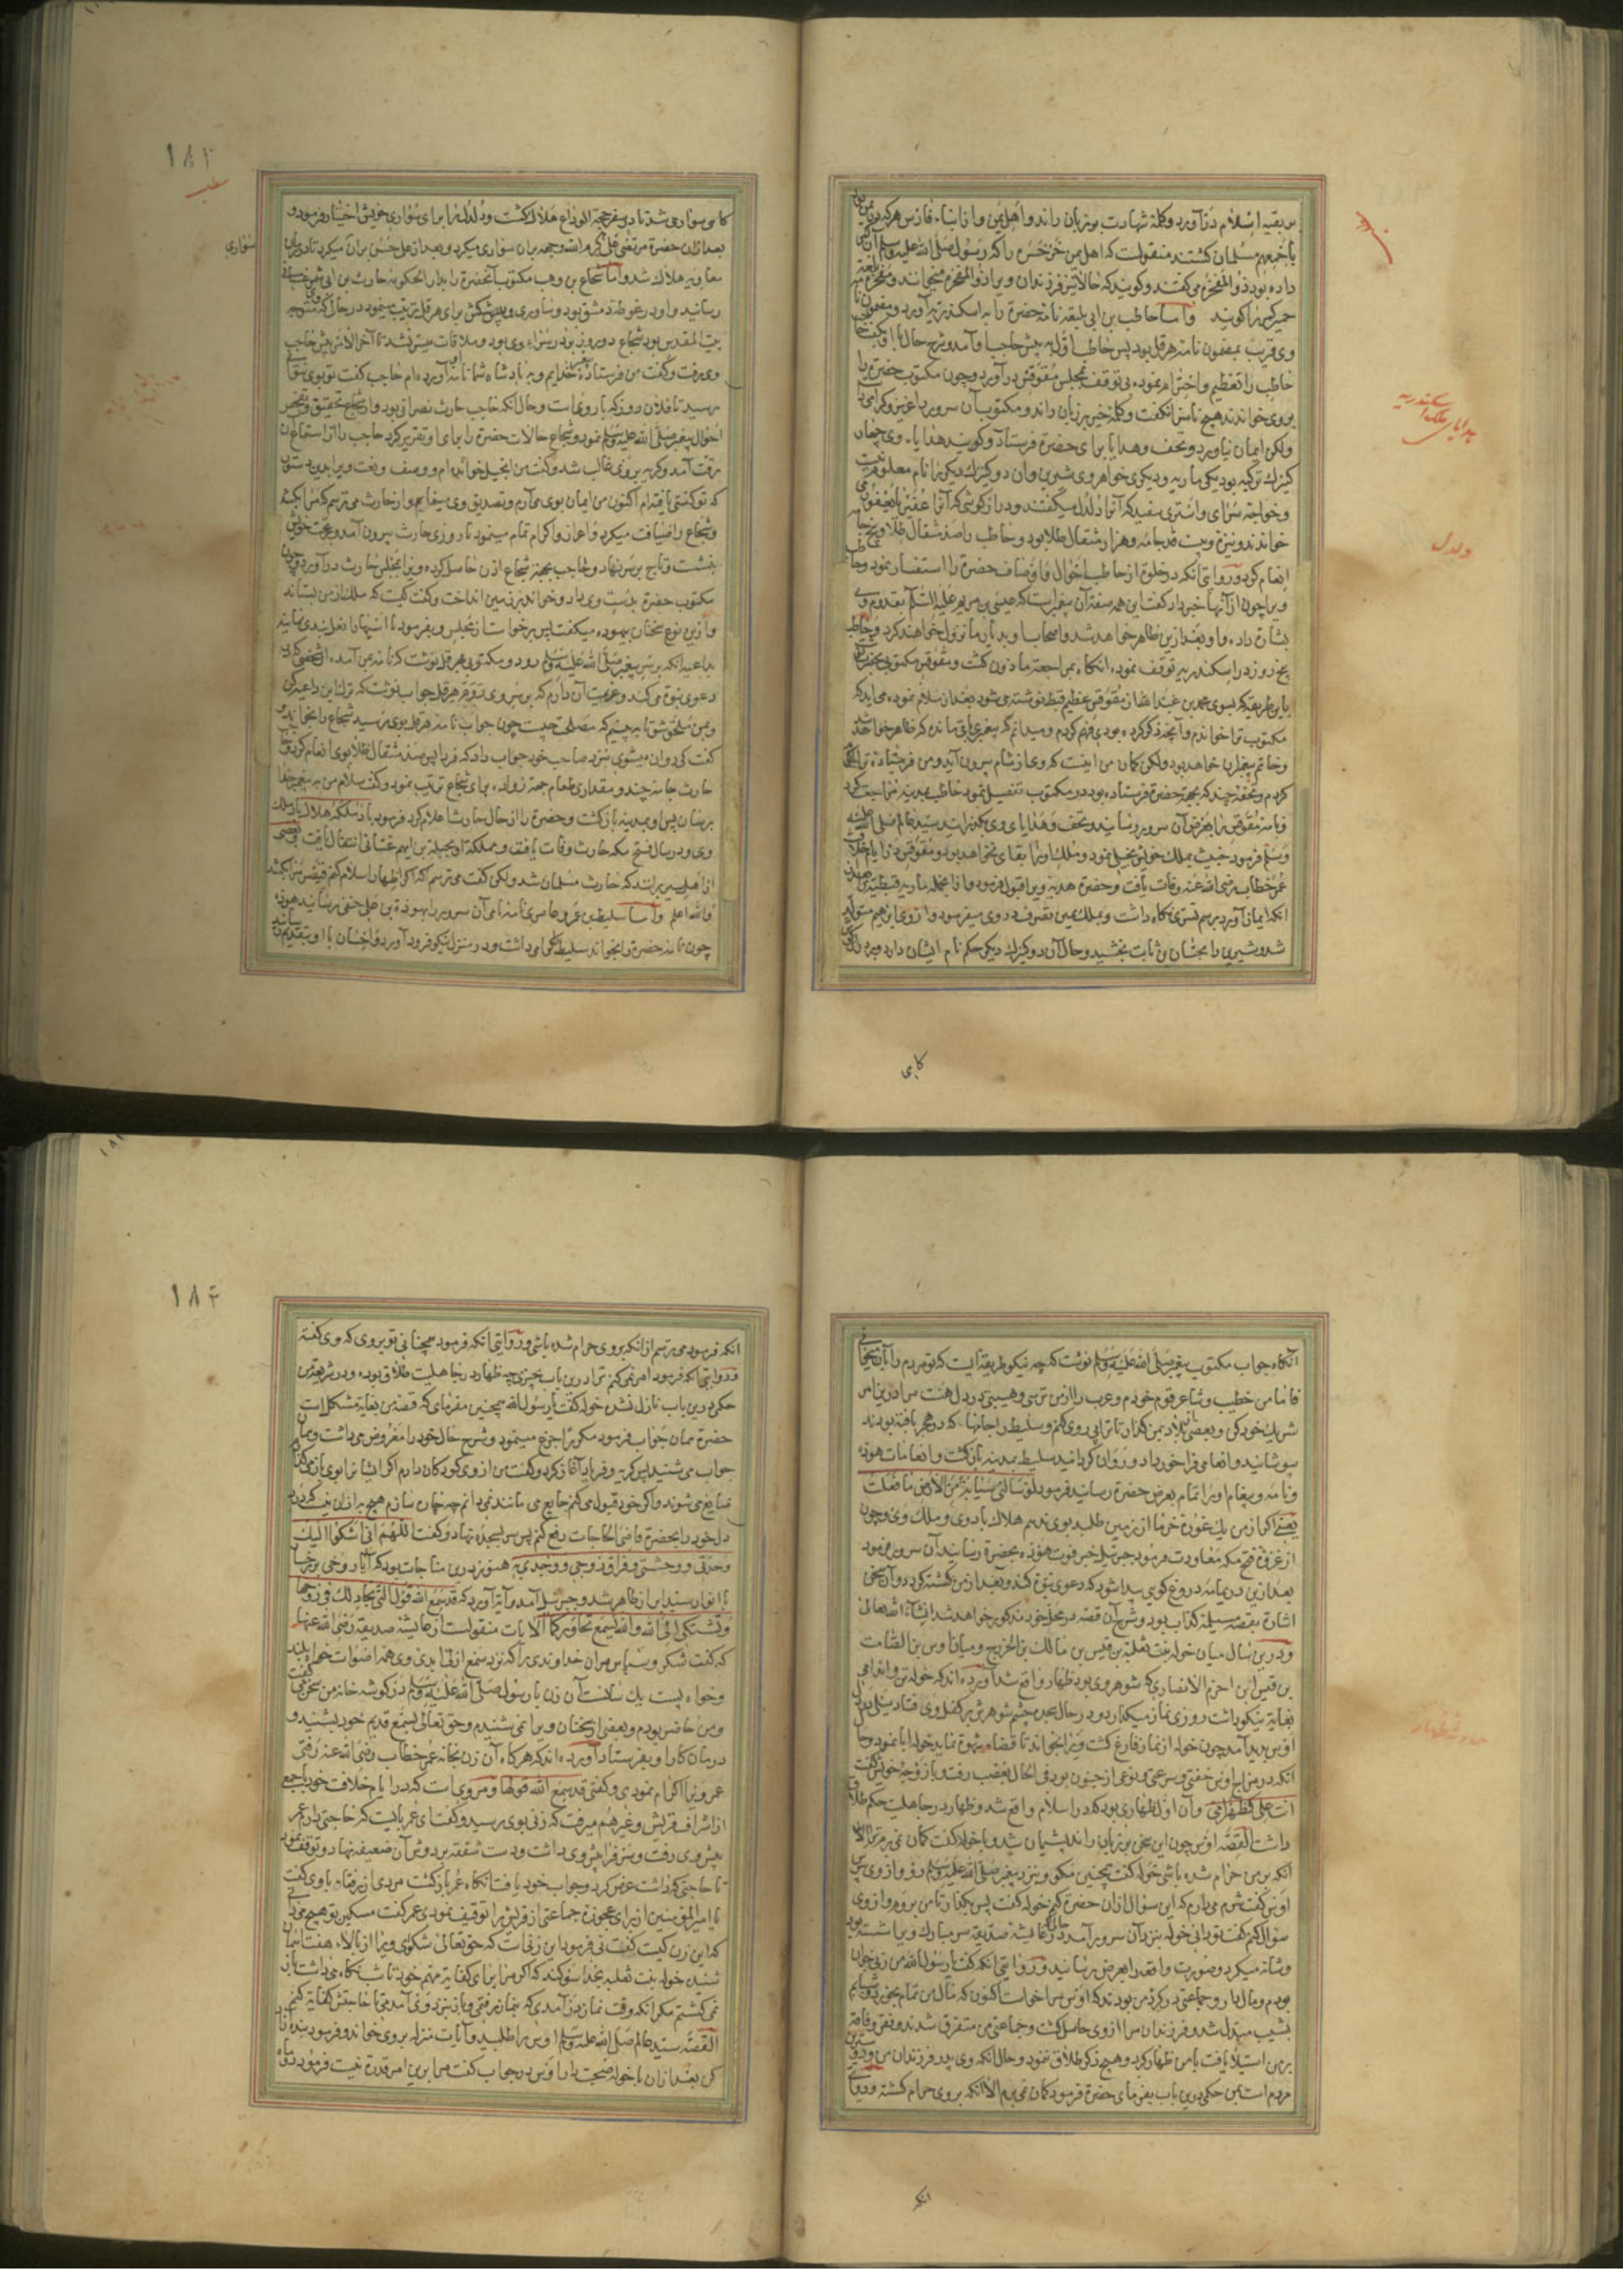 بقیه اسلام در آورد وکلمه شهادت بر زبان راند و اهل یمن و از ابناء فارس هرکه در یمن بود
باجمعهم مسلمان کشتند منقولست که اهل یمن خرخسره را که رسول صلی الله علیه وسلم آن
داده بود ذو المفخره می کفتند و کویند که حالا نیز فرزندان ویرا ذو المفخره میخوانند و مفخره بلغة
حمیر کمر را کویند واما حاطب بن ابی بلتعه نامه حضرة را به اسکندریه آورد و مضمون نامه
وی قریب بمضمون نامه هرقل بود پس حاطب اول پیش حاجب او آمد و شرح حال با او بکفت
حاطب را تعظیم واحترام نموده بی توقف بمجلس مقوقس در آورد و چون مکتوب حضرة را
بروی خواندند هیچ ناسزا نکفت وکلمه خیر بر زبان راند و مکتوب آن سرور را عزیز و کرامی
ولکن ایمان نیاورد و تحف وهدایا برای حضرة فرستاد و کویند هدایاء وی چهار
کنیزک ترکیه بود یکی ماریه و دیکری خواهر وی شیرین و آن دو کنیزک دیکر را نام معلوم نیست
وخواجه سرای و استری سفید که آنرا دلدل میکفتند و دراز کوشی که آنرا عفیر یا یعفور می
خواندند و نیزه وبیست قد جامه و هزار مثقال طلا بود و حاطب را صد مثقال طلا و پنج جامه
انعام کرد و روایتی آنکه در خلوة از حاطب احوال و اوصاف حضرة را استفسار نمود و حاطب
ویرا چون از آنها خبر داد کفت این همه صفة آن پیغمبر است که عیسی بن مریم علیه السلم بقدوم وی
بشارة داده و او بعد ازین ظاهر خواهد شد و اصحاب او بدیار ما نزول خواهند کرد و حاطب
پنج روز در اسکندریه توقف نمود، انکاه بمراجعة ماذون کشت و مقوقس مکتوبی بحضرة
باین طریقه که بسوی محمد بن عبدالله از مقوقس عظیم قبط نوشته می شود بعد از سلام نموده می آید که
مکتوب ترا خواندم و آنچه ذکر کرده بودی فهم کردم و میدانم که پیغمبری باقی مانده که ظاهر خواهد شد
وخاتم پیغمبران خواهد بود ولکن کمان من اینست که وی از شام بیرون آید و من فرستاده ترا اکرام
کردم و تحفه چند که بجهة حضرة فرستاده بود در مکتوب تفصیل نمود حاطب بمدینه مراجعت کرد
ونامه مقوقس را بعرض آن سرور رسانید و تحف و هدایای وی بکذرانید سید عالم صلی الله علیه
وسلم فرمود خبیث بملک خویش بخیلی نمود و ملک او را بقای نخواهد بود و مقوقس در ایام خلافت
عمر خطاب رضی الله عنه وفات یافت و حضرة هدیه ویرا قبول فرمود و از انجمله ماریه قبطیه
انکه ایمان آورد برسم تسری نکاه داشت و بملک یمین تصرف در وی میفرمود و از وی ابراهیم متولد
شد و شیرین را بحسان بن ثابت بخشید و حال آن دو کنیزک دیکر حکم نام ایشان دارد
کاهی
هدایای ملک اسکندریه
دلدل
۱۸۳
کاهی سوار می شد تا در سفر حجة الوداع هلاک کشت و دلدل را برای سواری خویش اختیار فرمود و
بعد از ان حضرة مرتضی علی کرم الله وجهه بران سواری میکرد و بعد از علی حسن بران میکرد تا در زمان
سواری
معاویه هلاک شد و اما شجاع بن وهب مکتوب آنحضرة را بدار الحکومه حارث بن ابی شمر غسانی
رسانید و او در غوطه دمشق بود و نیازی و پیشکش برای هرقل ترتیب مینمود در حال که متوجه
بیت المقدس بود شجاع دو روز بر در سراء وی بود و ملاقات میسر نشد تا آخر الامر پیش حاجب
وی رفت و کفت من فرستادۀ رسول خدایم و به پادشاه شما نامه آورده ام حاجب کفت تو بوی نتوا
رسید تا فلان روز که بار وی است و حال آنکه حاجب حارث نصرانی بود و از شجاع تحقیق و تفحص
احوال پیغمبر صلی الله علیه وسلم نمود و شجاع حالات حضرة را برای او تقریر کرد حاجب را از استماع آن
رقت آمد و کریه بروی غالب شد و کفت من انجیل خوانده ام و وصف و نعت ویرا بدین دستور
که تو کفتی یافته ام اکنون من ایمان بوی می آرم و تصدیق وی مینمایم و از حارث می ترسم که مرا بکشد
و شجاع را ضیافت میکرد و اعزاز و اکرام تمام مینمود تا روزی حارث بیرون آمد و بر تخت خویش
بنشست و تاج بر سر نهاد و حاجب بجهة شجاع اذن حاصل کرده ویرا بمجلس حارث در آورد و چون
مکتوب حضرة بدست وی داد و خواند بر زمین انداخت و کفت کیست که ملک از من بستاند
و ازین نوع سخنان بیهوده میکفت پس برخواست از مجلس و بفرمود تا اسپهان را نعل بندی نمایند
بداعیه آنکه بر سر پیغمبر صلی الله علیه وسلم رود و مکتوبی بهرقل نوشت که نامه بمن آمده از شخصی که
دعوی نبوة می کند و عزیمت آن دارم که بر سر وی روم هرقل جواب نوشت که ترا این داعیه
و بمن ملحق شو تا ببینیم که مصلحت چیست چون جواب نامه هرقل بوی رسید شجاع را بخواند و
کفت کی روان میشوی بنزد صاحب خود جواب داد که فردا پس صد مثقال طلا بوی انعام کرد و حاجب
حارث جامه چند و مقداری طعام جهة زواده برای شجاع ترتیب نمود و کفت سلام من به پیغمبر خدا
برسان پس او بمدینه باز کشت و حضرة را از حال حارث اعلام کرد فرمود باد ملکه هلاک باد ملک
وی و در سال فتح مکه حارث وفات یافت و مملکة او بجبلة بن ایهم غسانی انتقال یافت و بعضی
از اهل سیر برانند که حارث مسلمان شد ولکن کفت می ترسم که اکر اظهار اسلام کنم قیصر مرا بکشد
والله اعلم واما سلیط بن عمرو عامری نامه نامی آن سرور را بهوذة بن علی حنفی رسانید هوذه
چون نامه حضرة را بخواند سلیط را کرامی داشت و در منزل نیکو فرود آورد و احسان با او بتقدیم رسانید
انکاه جواب مکتوب پیغمبر صلی الله علیه وسلم نوشت که چه نیکو طریقه ایست که تو مردم را بآن میخوانی
فاما من خطیب و شاعر قوم خودم و عرب را از من ترسی و هیبتی در دل هست مرا درین امر
شریک خود کن و بعضی از بلاد بمن کذار تا ترا پی روی کنم و سلیط را جامها که در هجر بافته بودند
بپوشانید و انعامی فراخور داد و روان کردانید سلیط بمدینه باز کشت و انعامات هوذه
و نامه و پیغام او را تمام بعرض حضرة رسانید فرمود لو سالنی سیابة من الارض ما فعلت
یعنی اکر از من یک غورۀ خرما از زمین طلبد بوی ندهم هلاک باد وی و ملک وی و چون
از غزوۀ فتح مکه معاودت فرمود جبرئیل خبر فوت هوذه بحضرة رسانید آن سرور فرمود
بعد ازین در یمامه دروغ کوی پیدا شود که دعوی نبوة کند و بعد از من کشته کردد و آن سخن
اشارة بقصۀ مسیلمه کذاب بود و شرح آن قصه در محل خود مذکور خواهد شد انشاء الله تعالی
و درین سال میان خوله بنت ثعلبة بن قیس بن مالک بن الخزرج و میان اوس بن الصامت
بن قیس ابن احرم الانصاری که شوهر وی بود ظهار واقع شد آورده اند که خوله تن و اندامی
بغایة نیکو داشت روزی نماز میکذارد و در حال سجده چشم شوهرش بر کفل وی فتاد میلی در دل
اوس پدید آمد چون خوله از نماز فارغ کشت ویرا بخواند تا قضاء شهوة نماید خوله ابا نمود و حال
انکه در مزاج اوس خفتی و سرعتی و نوعی از جنون بود فی الحال بغضب رفت و با زوجۀ خویش کفت
انت علی کظهر امی و آن اول ظهاری بود که در اسلام واقع شد و ظهار در جاهلیت حکم طلاق
داشت القصه اوس چون این سخن بر زبان راند پشیمان شد و با خوله کفت کمان نمی برم الا
انکه بر من حرام شده باشی خوله کفت همچنین مکو و بنزد پیغمبر صلی الله علیه وسلم رو و از وی بپرس
اوس کفت شرم می دارم که این سوال از ان حضرة کنم خوله کفت پس بکذار تا من بروم و از وی
سوال کنم کفت تو دانی خوله بنزد آن سرور آمد و عایشه صدیقه سر مبارک ویرا شسته بود
و شانه میکرد و صورت واقعه را بعرض رسانید و روایتی آنکه کفت یا رسول الله من زنی جوان
بودم و مال دار و جماعتی در کرد من بودند که اوس مرا خواست اکنون که مال من تمام بخورد و شبابم
بشیب مبدل شد و فرزندان مرا از وی حاصل کشت و جماعتی من متفرق شدند و فقر و فاقه
بر من استیلا یافت با من ظهار کرد و هیچ ذکر طلاق ننمود و حال انکه وی پدر فرزندان من و دوستترین
مردم است بمن حکمی درین باب بفرمای حضرة فرمود کمان نمی برم الا انکه بروی حرام کشته و روایتی
انکه
۱۸۴
انکه فرمود می ترسم از انکه بروی حرام شده باشی و روایتی انکه فرمود همچنانی تو بروی که وی کفته
و روایتی انکه فرمود امر نمی کنم ترا درین باب بچیزی چه ظهار در جاهلیت طلاق بوده و در شریعة من
حکمی درین باب نازل نشده خوله کفت یا رسول الله همچنین مفرمای که قصۀ من بغایة مشکل است
حضرة همان جواب فرمود مکررا جزع مینمود و شرح حال خود را معروض می داشت و همان
جواب می شنید پس کریه و فریاد آغاز کرد و کفت من از وی کودکان دارم اکر ایشانرا بوی باز کذارم
ضایع می شوند و اکر خود قبول می کنم جایع می مانند نمی دانم چه چاره سازم هیچ به از ان نیست که درد
دل خود را بحضرة قاضی الحاجات رفع کنم پس سر بسجده نهاد و کفت اللهم انی اشکوا الیک
وحدتی و وحشتی و فراق زوجی و وجدی به هنوز درین مناجات بود که آثار وحی بر رخسار
با انوار سید ابرار ظاهر شد و جبرئیل آمد و آیة آورد که قد سمع الله قول التی تجادلک فی زوجها
وتشتکی الی الله والله یسمع تحاورکما الآیات منقولست از عایشه صدیقه رضی الله عنها
که کفت شکر و سپاس مران خداوندی را که نزد سمع ازلی ابدی وی همه اصوات خواه بلند
و خواه پست یک سانست آن زن با رسول صلی الله علیه وسلم در کوشه خانۀ من سخن می کفت
و من حاضر بودم و بعضی از سخنان ویرا نمی شنیدم و حق تعالی بسمع قدیم خود بشنید و
درمان کار او بفرستاد آورده اند که هر کاه آن زن بخانه عمر خطاب رضی الله عنه رفتی
عمر ویرا اکرام نمودی و کفتی قد سمع الله قولها و مروی است که در ایام خلافت خود با جمعی
از اشراف قریش و غیرهم میرفت که زنی بوی رسید و کفت ای عمر بایست که حاجتی دارم عمر
پیش وی رفت و سر فرا پیش وی داشت و دست شفقة بر دوش آن ضعیفه نهاد و توقف نمود
تا حاجتی که داشت عرض کرد و جواب خود یافت انکاه عمر باز کشت مردی از رفقاء با وی کفت
یا امیر المؤمنین از برای عجوزۀ جماعتی از قریش را توقیف نمودی عمر کفت مسکین تو هیچ می دانی
که این زن کیست کفت نی فرمود این زنیست که حق تعالی شکوای ویرا از بالاء هفت آسمان
شنید خوله بنت ثعلبه بخدا سوکند که اکر مرا برای کفایة مهم خود تا شب نکاه می داشت باز
نمی کشتم مکر انکه وقت نماز در آمدی که بنماز رفتمی و باز بنزد وی آمدمی تا حاجتش کفایة کنم
القصه سید عالم صلی الله علیه وسلم اوس را طلبید و آیات منزله بروی خواند و فرمود بنده آزاد
کن بعد از ان با خوله صحبت دار اوس در جواب کفت مرا برین امر قدرة نیست فرمود